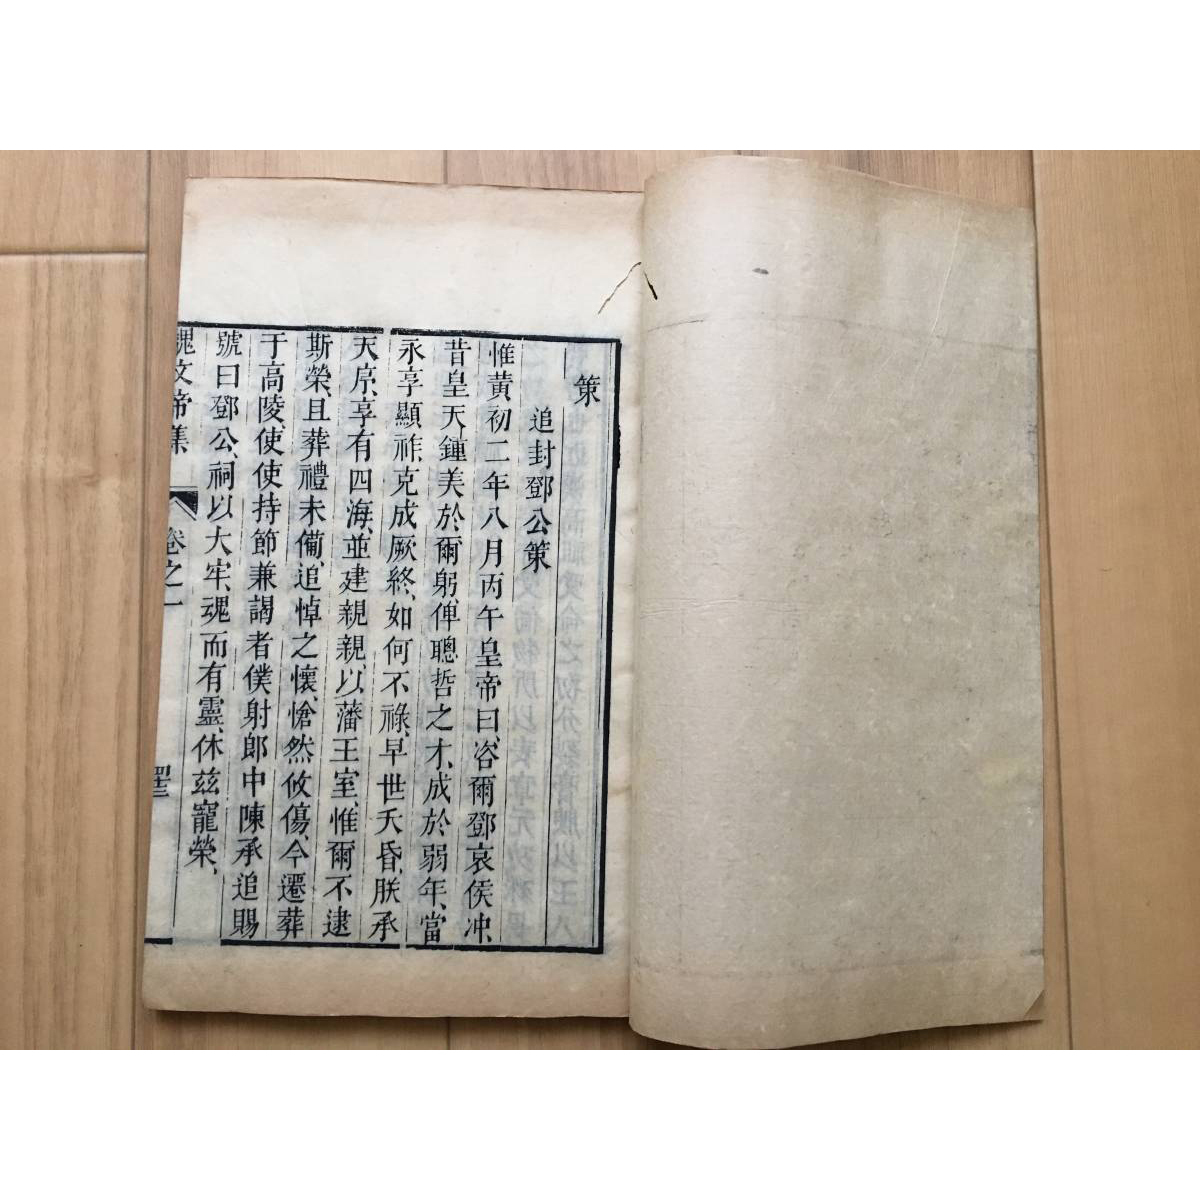 策
追封鄧公策
惟黃初二年八月丙午皇帝曰、咨爾鄧哀侯冲、
昔皇天鍾美於爾躬、俾聰哲之才、成於弱年、當
永享顯祚、克成厥終、如何不祿、早世夭昏、朕承
天序、享有四海、並建親親、以藩王室、惟爾不逮
斯榮、且葬禮未備、追悼之懷、愴然攸傷、今遷葬
于高陵、使使持節兼謁者僕射郎中陳承、追賜
號曰鄧公、祠以大牢、魂而有靈、休茲寵榮、
魏文帝集
卷之一